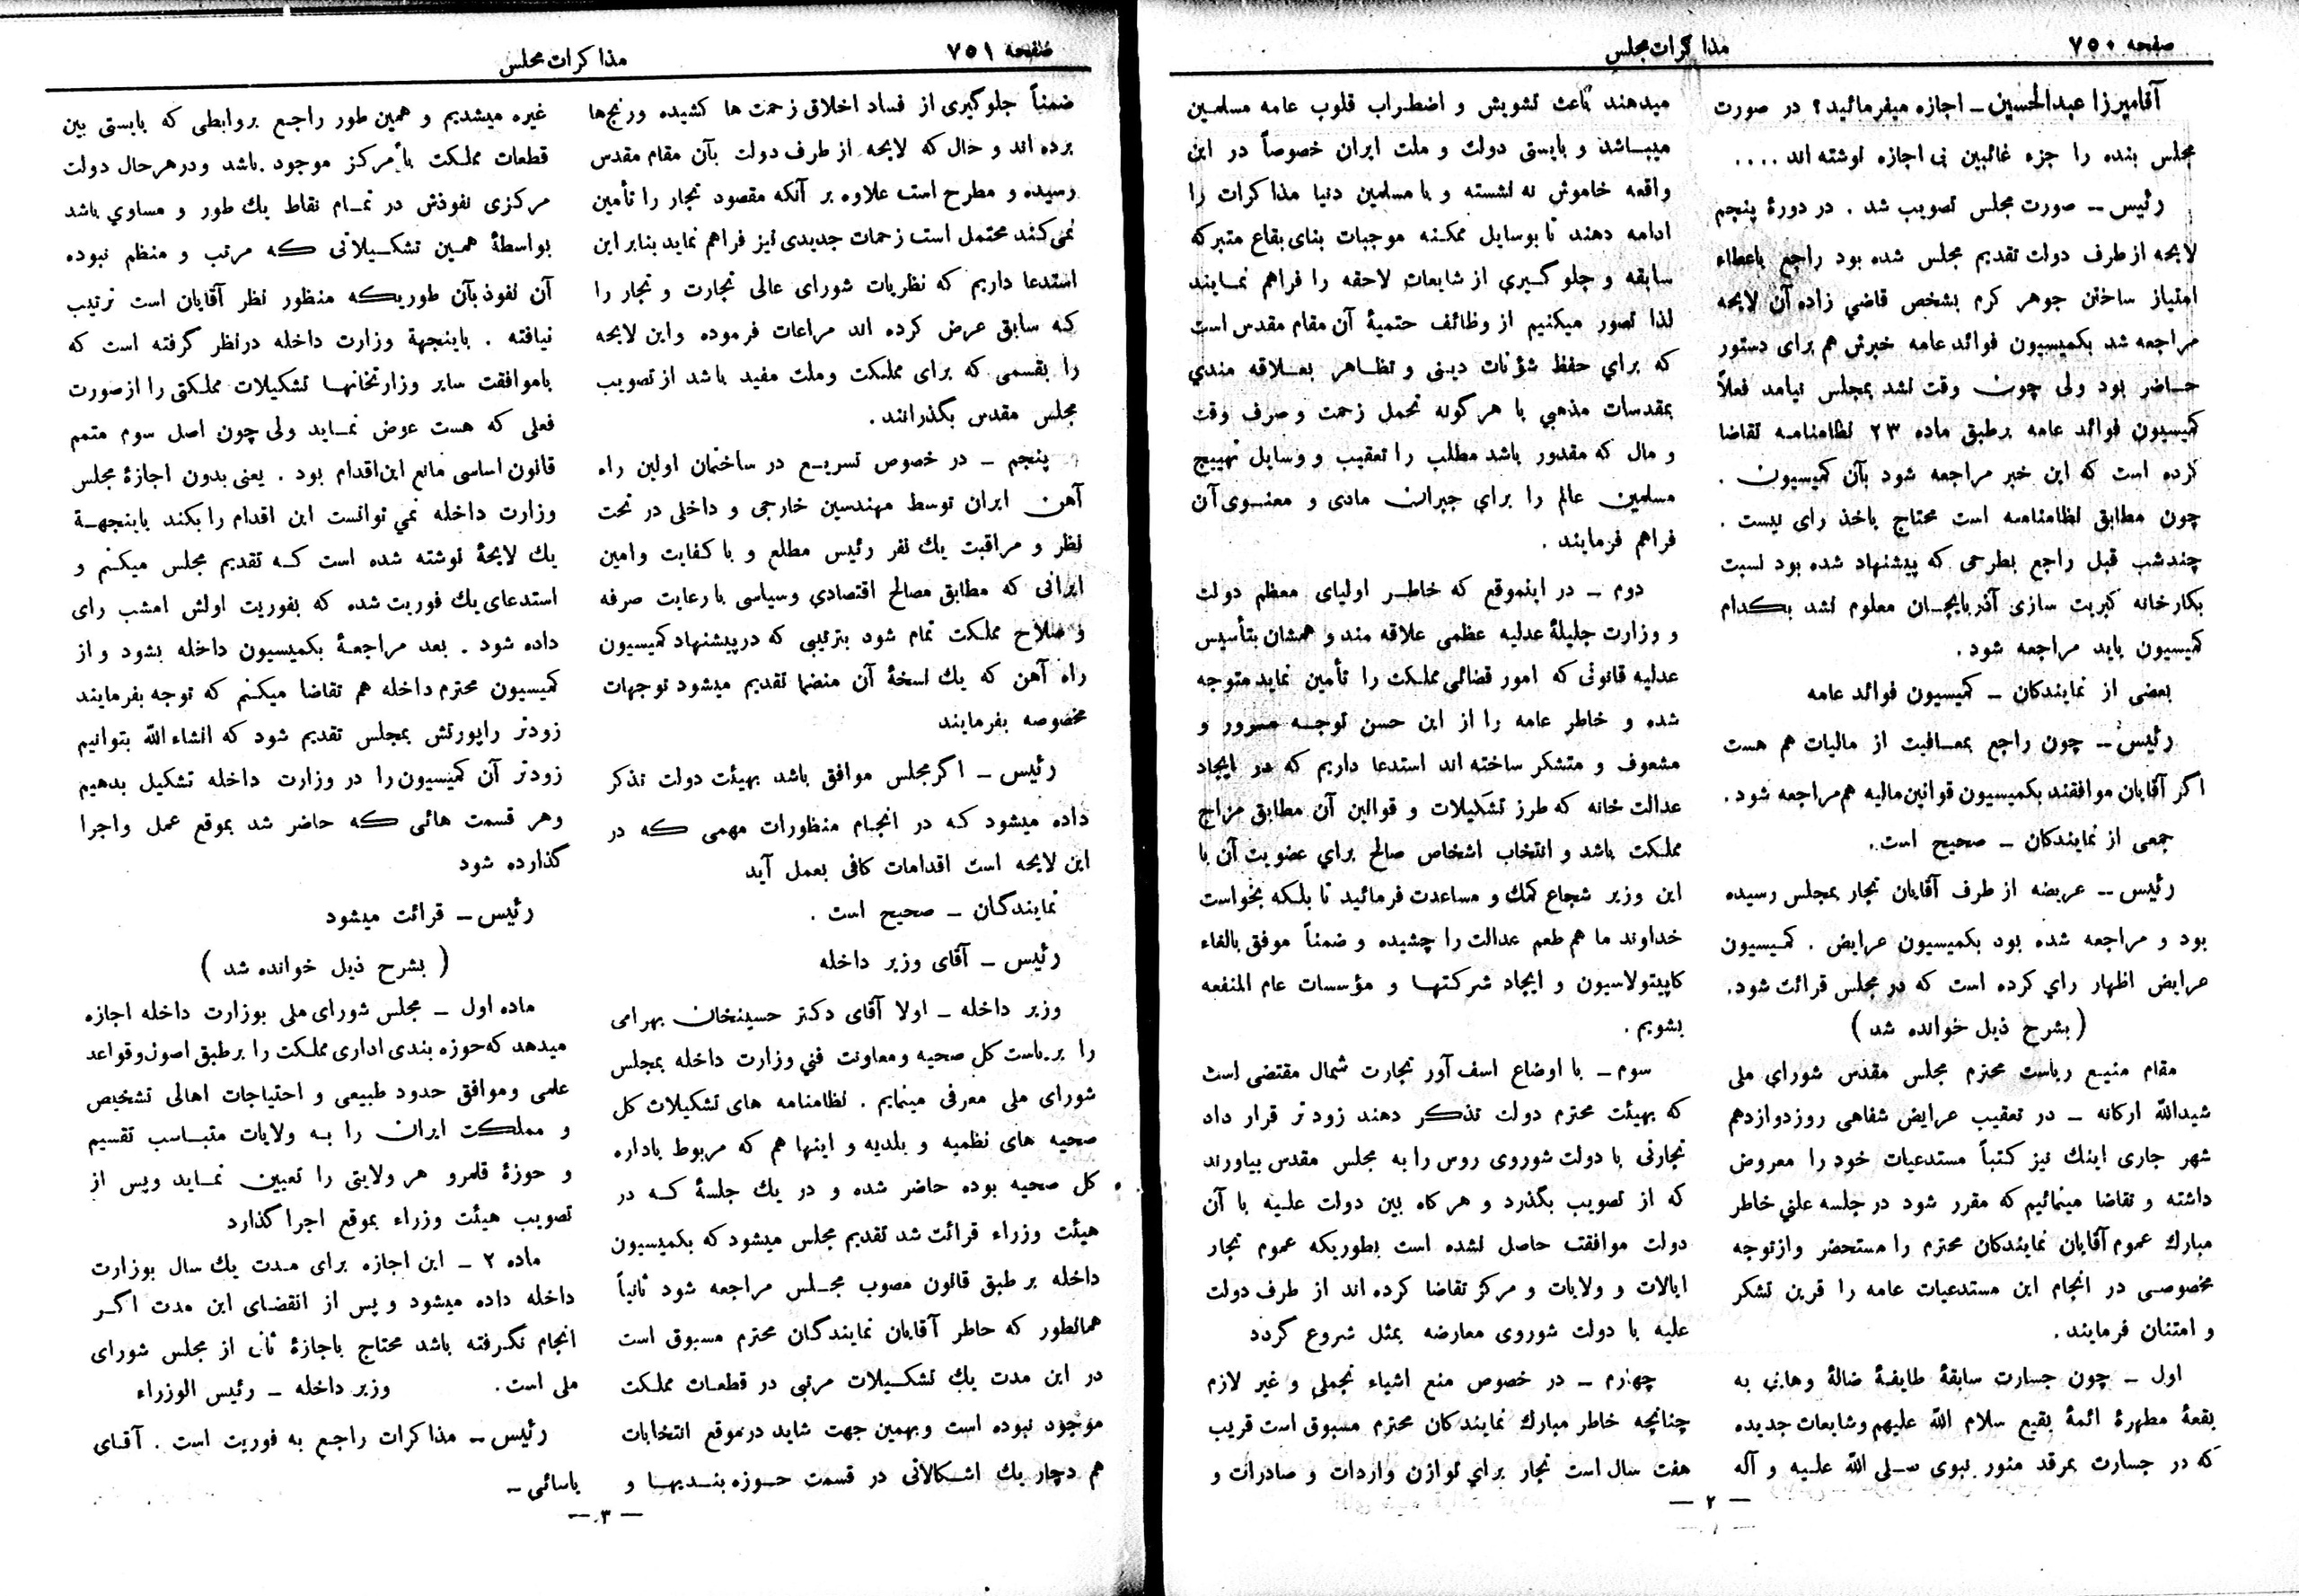 صفحه ۷۵۰
مذاکرات مجلس
آقامیرزا عبدالحسین ـ اجازه میفرمائید؟ در صورت
مجلس بنده را جزء غائبین بی اجازه نوشته اند ....
رئیس ـ صورت مجلس تصویب شد . در دورۀ پنجم
لایحه از طرف دولت تقدیم مجلس شده بود راجع باعطاء
امتیاز ساختن جوهر کرم بشخص قاضی زاده آن لایحه
مراجعه شد بکمیسیون فوائد عامه خبرش هم برای دستور
حاضر بود ولی چون وقت نشد بمجلس نیامد فعلاً
کمیسیون فوائد عامه برطبق ماده ۲۳ نظامنامه تقاضا
کرده است که این خبر مراجعه شود بآن کمیسیون .
چون مطابق نظامنامه است محتاج باخذ رای نیست .
چندشب قبل راجع بطرحی که پیشنهاد شده بود نسبت
بکارخانه کبریت سازی آذربایجان معلوم نشد بکدام
کمیسیون باید مراجعه شود .
بعضی از نمایندکان ـ کمیسیون فوائد عامه
رئیس ـ چون راجع بمعافیت از مالیات هم هست
اگر آقایان موافقند بکمیسیون قوانین مالیه هم مراجعه شود .
جمعی از نمایندکان ـ صحیح است .
رئیس ـ عریضه از طرف آقایان تجار بمجلس رسیده
بود و مراجعه شده بود بکمیسیون عرایض . کمیسیون
عرایض اظهار رای کرده است که در مجلس قرائت شود .
( بشرح ذیل خوانده شد )
مقام منیع ریاست محترم مجلس مقدس شورای ملی
شیدالله ارکانه ـ در تعقیب عرایض شفاهی روز دوازدهم
شهر جاری اینك نیز کتباً مستدعیات خود را معروض
داشته و تقاضا مینمائیم که مقرر شود در جلسه علنی خاطر
مبارك عموم آقایان نمایندکان محترم را مستحضر و از توجه
مخصوصی در انجام این مستدعیات عامه را قرین تشکر
و امتنان فرمایند .
اول ـ چون جسارت سابقۀ طایفۀ ضالۀ وهابی به
بقعۀ مطهرۀ ائمۀ بقیع سلام الله علیهم و شایعات جدیده
که در جسارت بمرقد منور نبوی صلی الله علیه و آله
میدهند باعث تشویش و اضطراب قلوب عامه مسلمین
میباشد و بایستی دولت و ملت ایران خصوصاً در این
واقعه خاموش نه نشسته و با مسلمین دنیا مذاکرات را
ادامه دهند تا بوسایل ممکنه موجبات بنای بقاع متبرکه
سابقه و جلوگیری از شایعات لاحقه را فراهم نمایند
لذا تصور میکنیم از وظائف حتمیۀ آن مقام مقدس است
که برای حفظ شؤنات دینی و تظاهر بعلاقه مندی
بمقدسات مذهبی با هر گونه تحمل زحمت و صرف وقت
و مال که مقدور باشد مطلب را تعقیب و وسایل تهییج
مسلمین عالم را برای جبران مادی و معنوی آن
فراهم فرمایند .
دوم ـ در اینموقع که خاطر اولیای معظم دولت
و وزارت جلیلۀ عدلیه عظمی علاقه مند و همشان بتأسیس
عدلیه قانونی که امور قضائی مملکت را تأمین نماید متوجه
شده و خاطر عامه را از این حسن توجه مسرور و
مشعوف و متشکر ساخته اند استدعا داریم که در ایجاد
عدالت خانه که طرز تشکیلات و قوانین آن مطابق مزاج
مملکت باشد و انتخاب اشخاص صالح برای عضویت آن با
این وزیر شجاع کمك و مساعدت فرمائید تا بلکه بخواست
خداوند ما هم طعم عدالت را چشیده و ضمناً موفق بالغاء
کاپیتولاسیون و ایجاد شرکتها و مؤسسات عام المنفعه
بشویم .
سوم ـ با اوضاع اسف آور تجارت شمال مقتضی است
که بهیئت محترم دولت تذکر دهند زود تر قرار داد
تجارتی با دولت شوروی روس را به مجلس مقدس بیاورند
که از تصویب بگذرد و هرکاه بین دولت علیه با آن
دولت موافقت حاصل نشده است بطوریکه عموم تجار
ایالات و ولایات و مرکز تقاضا کرده اند از طرف دولت
علیه با دولت شوروی معارضه بمثل شروع گردد
چهارم ـ در خصوص منع اشیاء تجملی و غیر لازم
چنانچه خاطر مبارك نمایندکان محترم مسبوق است قریب
هفت سال است تجار برای توازن واردات و صادرات و
— ۲ —
صفحه ۷۵۱
مذاکرات مجلس
ضمناً جلوگیری از فساد اخلاق زحمت ها کشیده و رنج‌ها
برده اند و حال که لایحه از طرف دولت بآن مقام مقدس
رسیده و مطرح است علاوه بر آنکه مقصود تجار را تأمین
نمی‌کند محتمل است زحمات جدیدی نیز فراهم نماید بنابر این
استدعا داریم که نظریات شورای عالی تجارت و تجار را
که سابق عرض کرده اند مراعات فرموده و این لایحه
را بقسمی که برای مملکت و ملت مفید باشد از تصویب
مجلس مقدس بگذرانند .
پنجم ـ در خصوص تسریع در ساختمان اولین راه
آهن ایران توسط مهندسین خارجی و داخلی در تحت
نظر و مراقبت یك نفر رئیس مطلع و با کفایت و امین
ایرانی که مطابق مصالح اقتصادی و سیاسی با رعایت صرفه
و صلاح مملکت تمام شود بترتیبی که در پیشنهاد کمیسیون
راه آهن که یك نسخۀ آن منضما تقدیم میشود توجهات
مخصوصه بفرمایند
رئیس ـ اگر مجلس موافق باشد بهیئت دولت تذکر
داده میشود که در انجام منظورات مهمی که در
این لایحه است اقدامات کافی بعمل آید
نمایندگان ـ صحیح است .
رئیس ـ آقای وزیر داخله
وزیر داخله ـ اولا آقای دکتر حسینخان بهرامی
را بریاست کل صحیه و معاونت فنی وزارت داخله بمجلس
شورای ملی معرفی مینمایم . نظامنامه های تشکیلات کل
صحیه های نظمیه و بلدیه و اینها هم که مربوط باداره
کل صحیه بوده حاضر شده و در یك جلسۀ که در
هیئت وزراء قرائت شد تقدیم مجلس میشود که بکمیسیون
داخله بر طبق قانون مصوب مجلس مراجعه شود ثانیاً
همانطور که خاطر آقایان نمایندگان محترم مسبوق است
در این مدت یك تشکیلات مرتبی در قطعات مملکت
موجود نبوده است و بهمین جهت شاید در موقع انتخابات
هم دچار یك اشکالاتی در قسمت حوزه بندیها و
غیره میشدیم و همین طور راجع بروابطی که بایستی بین
قطعات مملکت با مرکز موجود باشد و در هر حال دولت
مرکزی نفوذش در تمام نقاط یك طور و مساوی باشد
بواسطۀ همین تشکیلاتی که مرتب و منظم نبوده
آن نفوذ بآن طوریکه منظور نظر آقایان است ترتیب
نیافته . باینجهة وزارت داخله در نظر گرفته است که
باموافقت سایر وزارتخانها تشکیلات مملکتی را از صورت
فعلی که هست عوض نماید ولی چون اصل سوم متمم
قانون اساسی مانع این اقدام بود . یعنی بدون اجازۀ مجلس
وزارت داخله نمی توانست این اقدام را بکند باینجهة
یك لایحۀ نوشته شده است که تقدیم مجلس میکنم و
استدعای یك فوریت شده که بفوریت اولش امشب رای
داده شود . بعد مراجعۀ بکمیسیون داخله بشود و از
کمیسیون محترم داخله هم تقاضا میکنم که توجه بفرمایند
زودتر راپورتش بمجلس تقدیم شود که انشاء الله بتوانیم
زودتر آن کمیسیون را در وزارت داخله تشکیل بدهیم
وهر قسمت هائی که حاضر شد بموقع عمل و اجرا
گذارده شود
رئیس ـ قرائت میشود
( بشرح ذیل خوانده شد )
ماده اول ـ مجلس شورای ملی بوزارت داخله اجازه
میدهد که حوزه بندی اداری مملکت را برطبق اصول و قواعد
علمی و موافق حدود طبیعی و احتیاجات اهالی تشخیص
و مملکت ایران را به ولایات متناسب تقسیم
و حوزۀ قلمرو هر ولایتی را تعیین نماید و پس از
تصویب هیئت وزراء بموقع اجرا گذارد
ماده ۲ ـ این اجازه برای مدت یك سال بوزارت
داخله داده میشود و پس از انقضای این مدت اگر
انجام نگرفته باشد محتاج باجازۀ ثانی از مجلس شورای
ملی است . وزیر داخله ـ رئیس الوزراء
رئیس ـ مذاکرات راجع به فوریت است . آقای
یاسائی ـ
— ۳ —